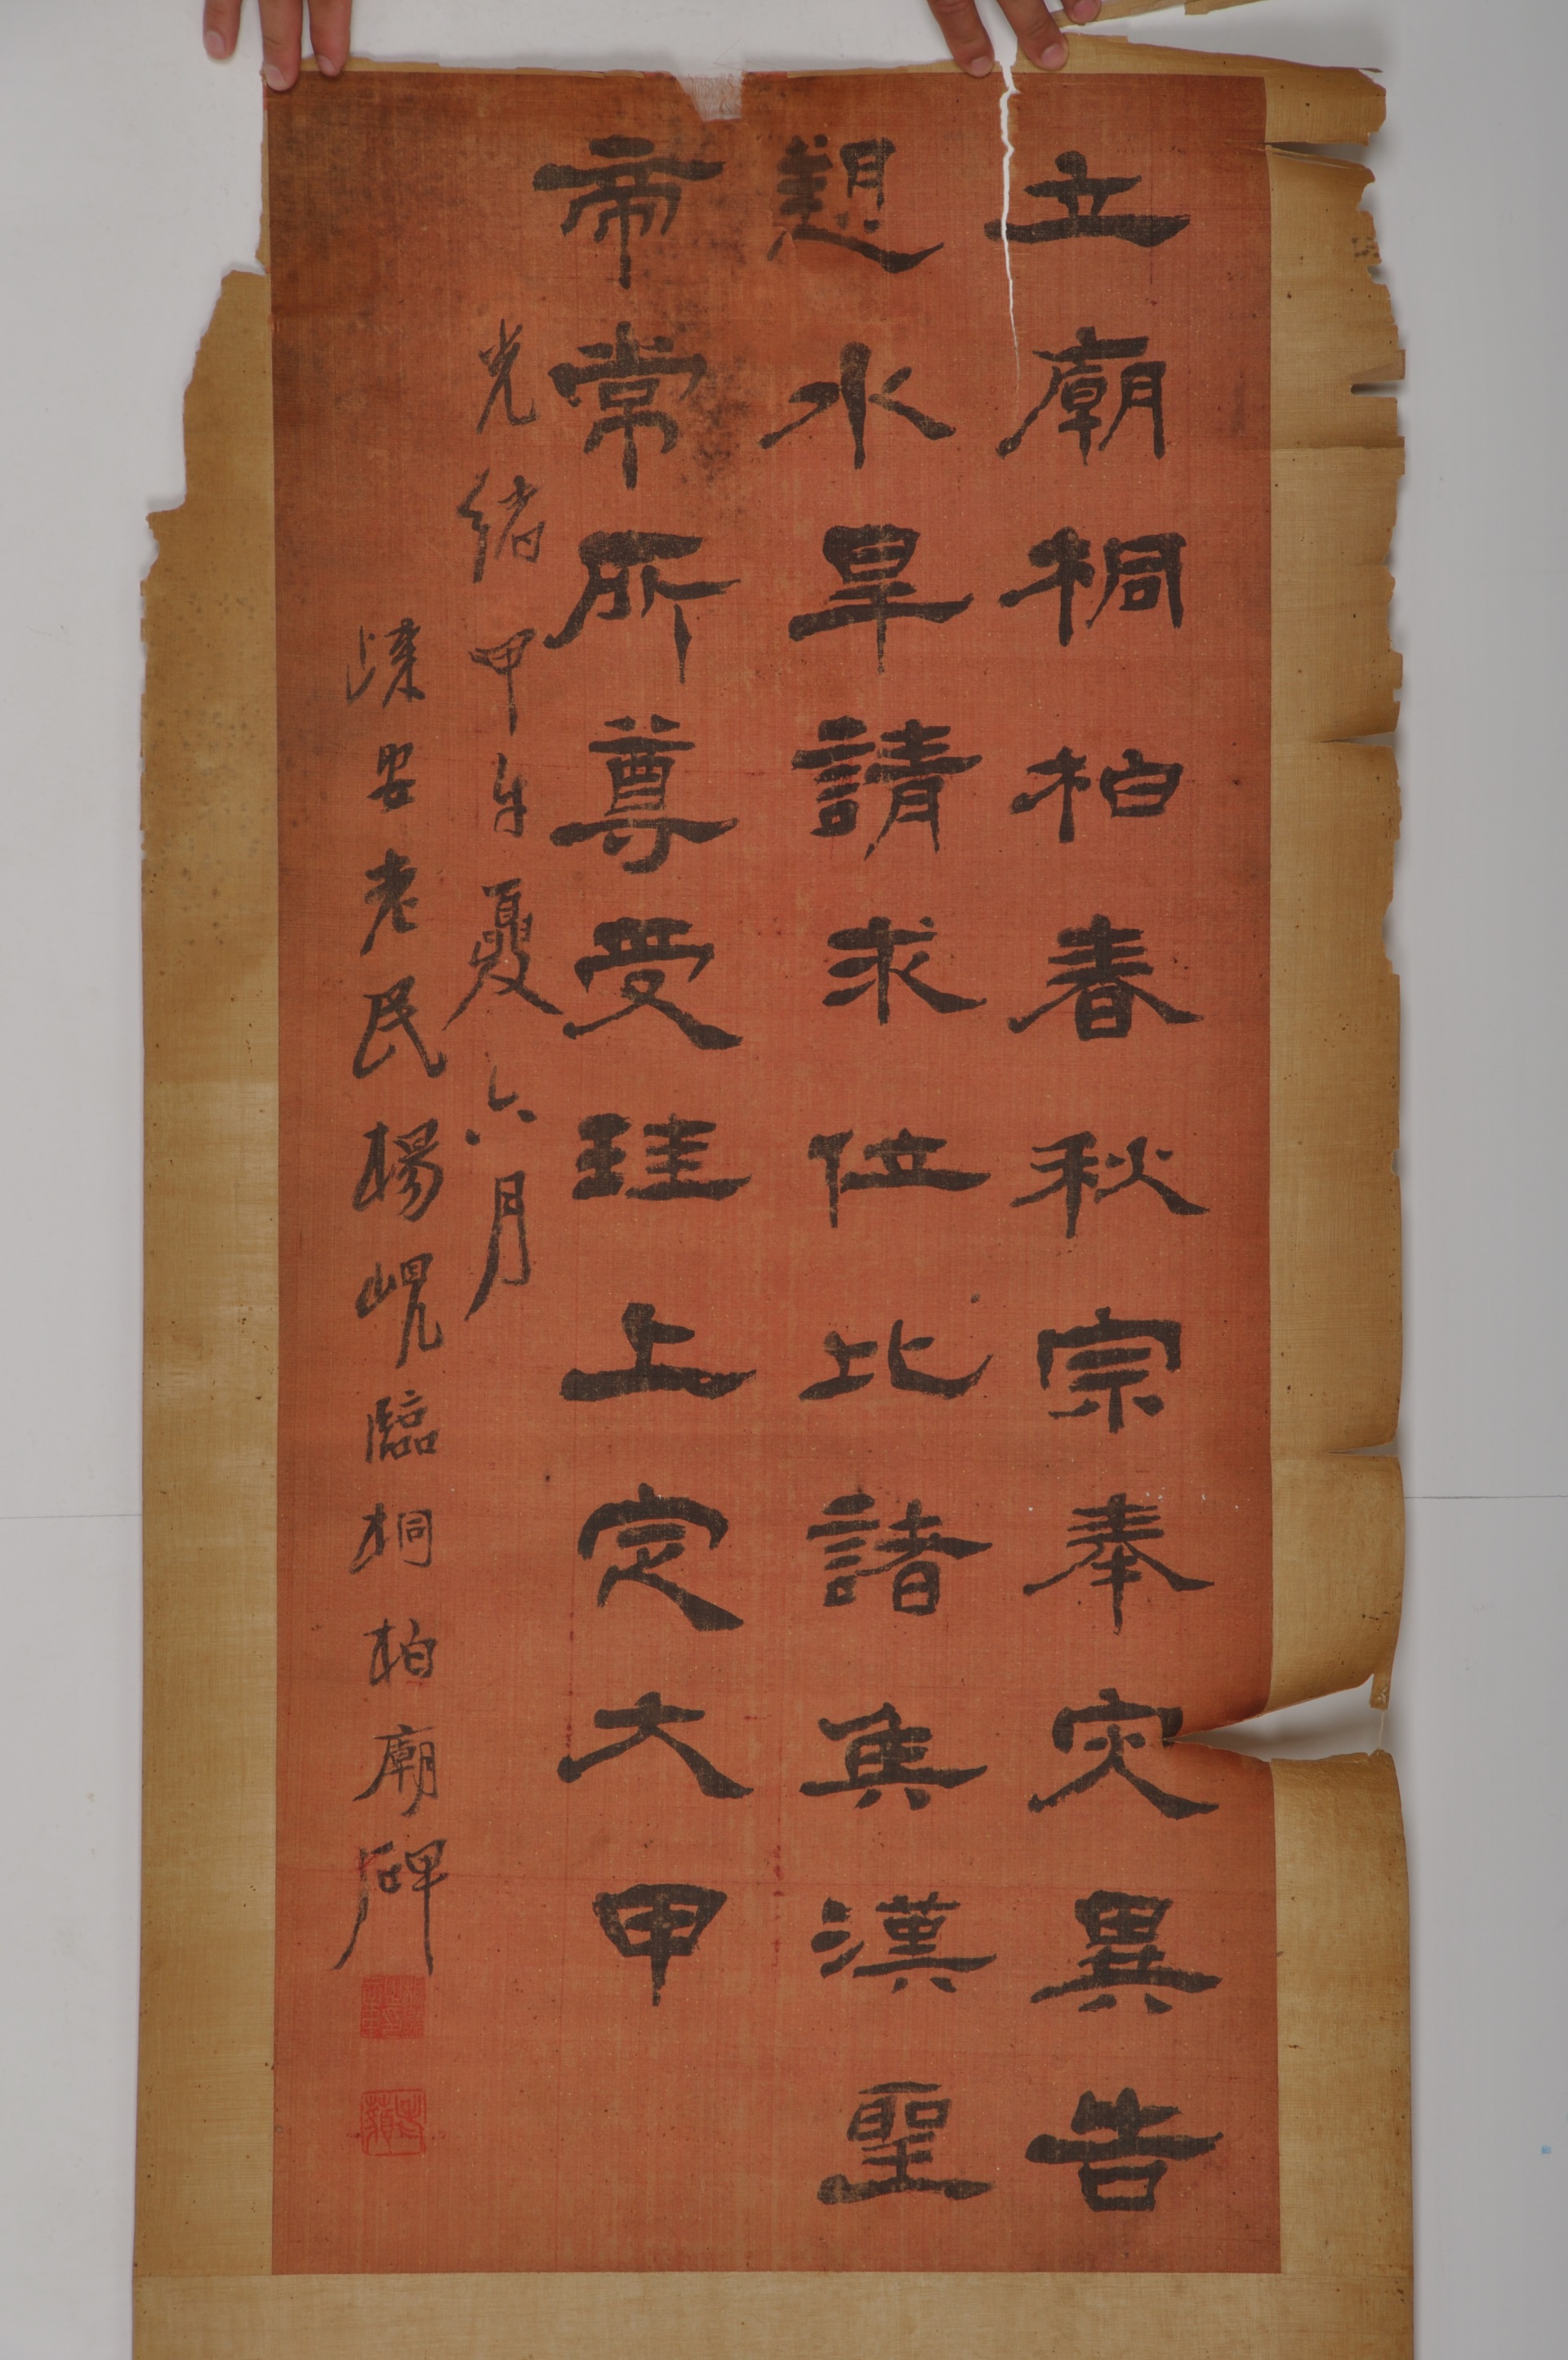 立廟桐柏春秋宗奉灾異告
愬水旱請求位比諸矦漢聖
帝常所尊受珪上定大甲
光緒甲午夏六月
歸安老民楊峴臨桐柏廟碑